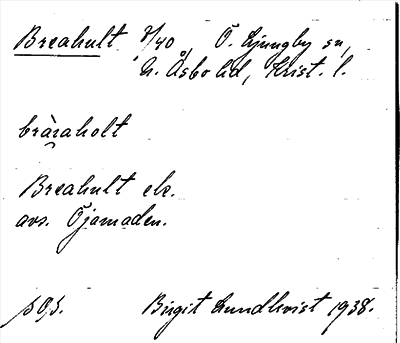 Breahult 7/40 Ö. Ljungby sn,
N. Åsbo hd, Krist. l.
bräraholt
Breahult ek.
avs. Öjamaden.
Birgit Lundkvist 1938.